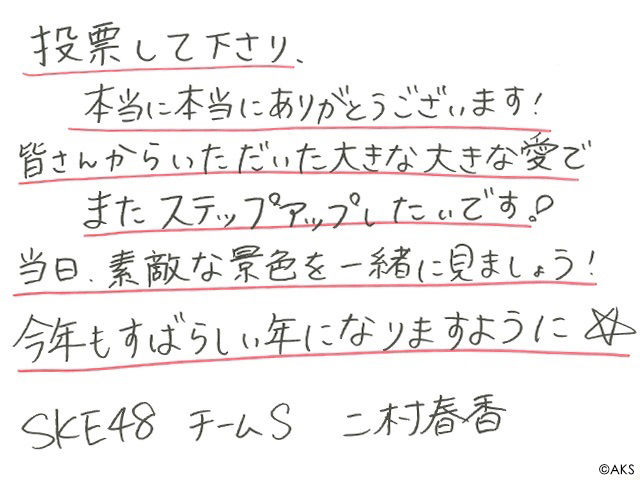 投票して下さり、
本当に本当にありがとうございます!
皆さんからいただいた大きな大きな愛で
またステップアップしたいです。!
当日、素敵な景色を一緒に見ましょう!
今年もすばらしい年になりますように☆
SKE48 チームS 二村春香
©AKS